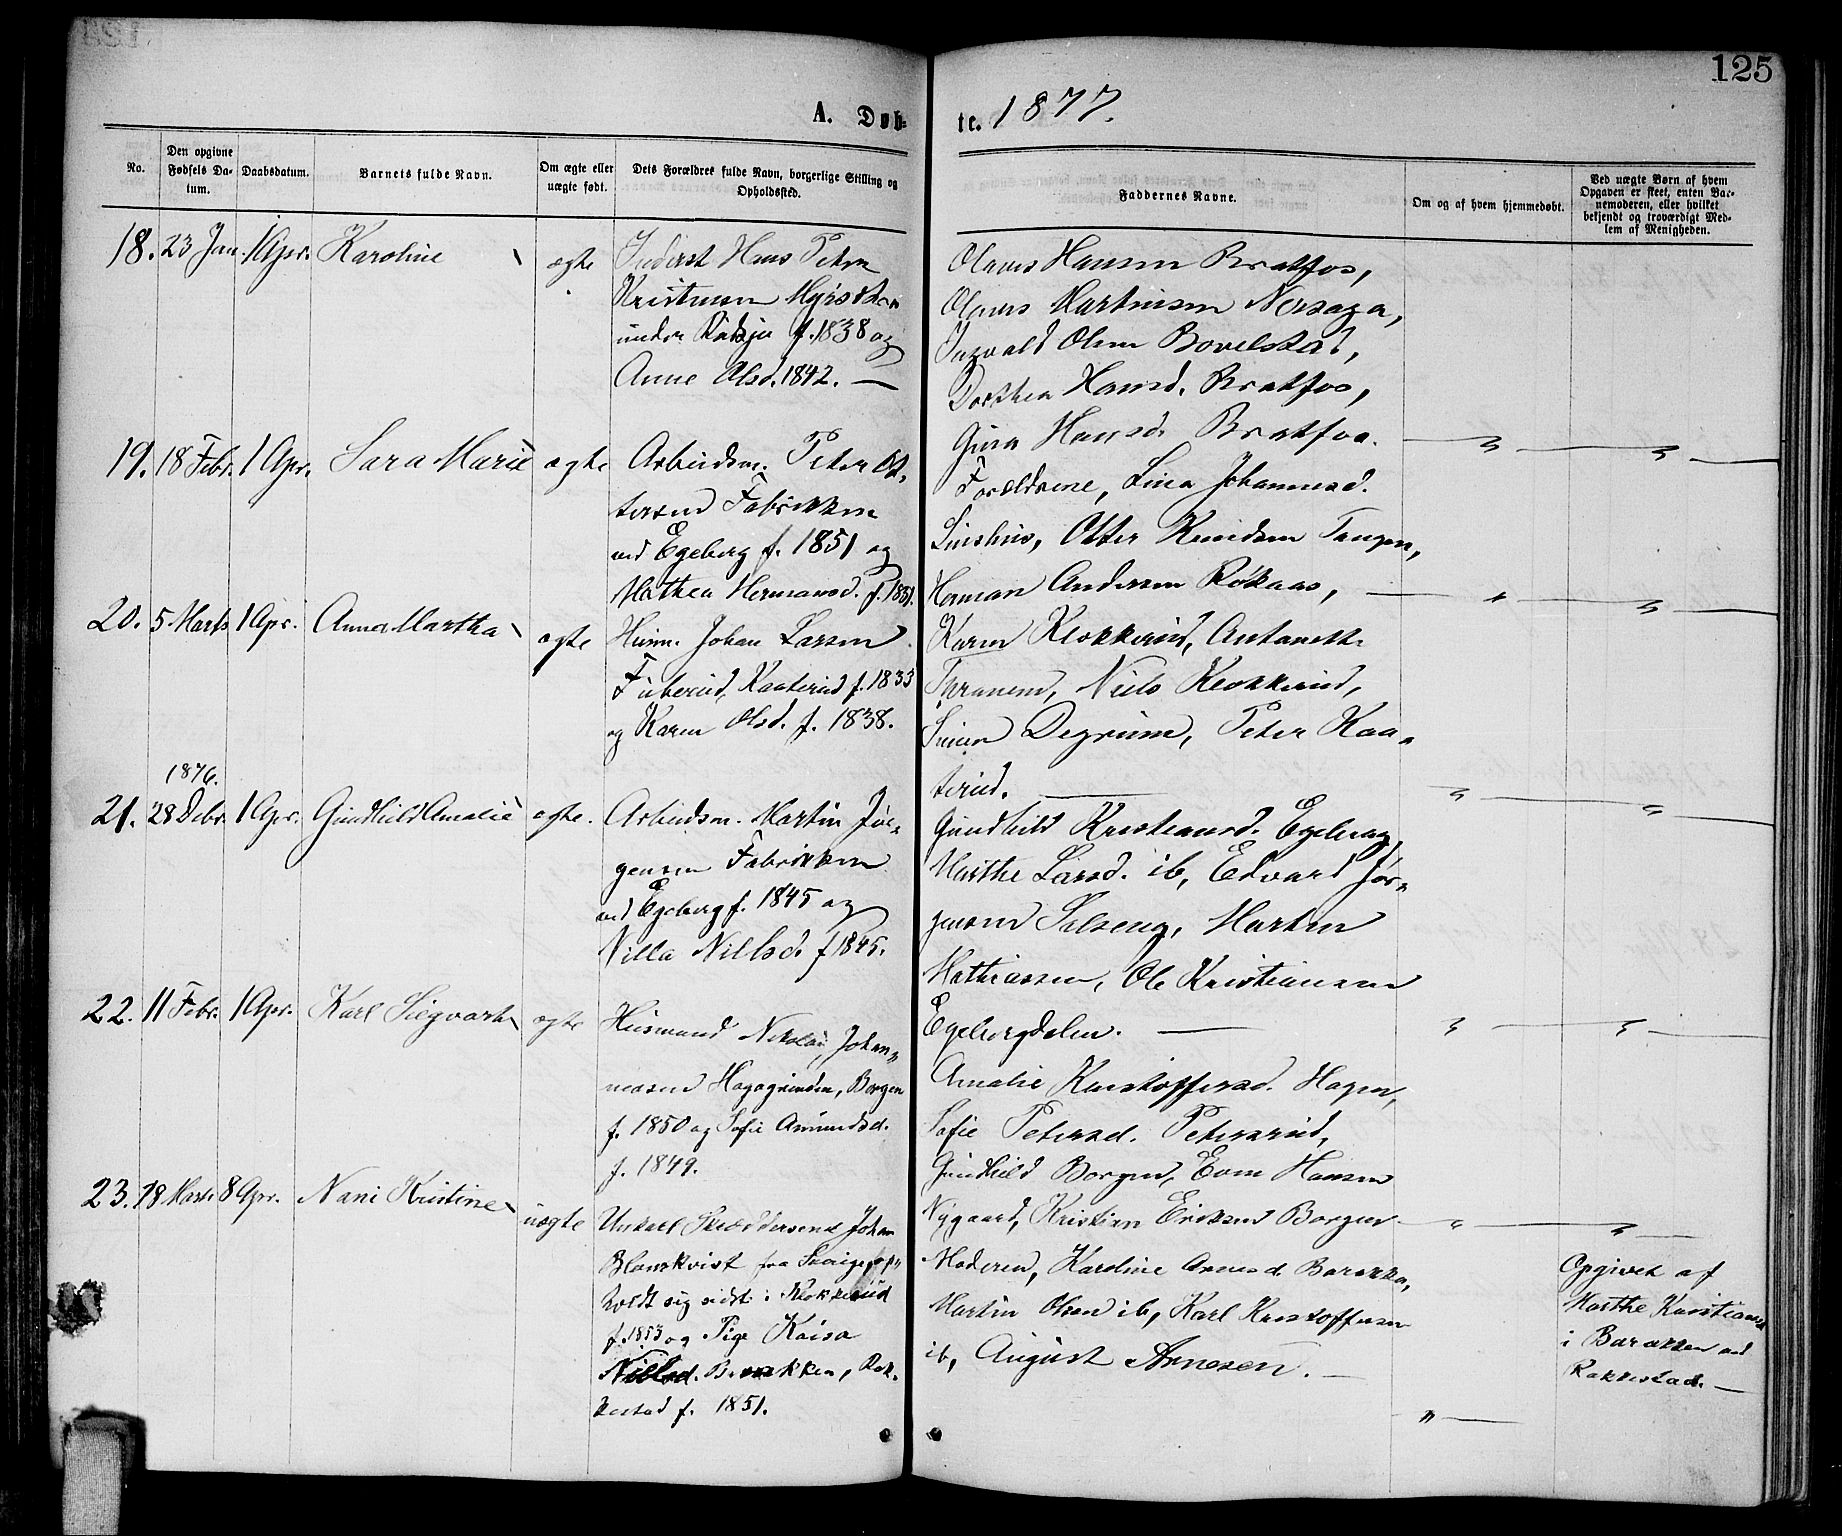 125
A. Døb-
te. 1877.
No.
Den opgivne Fødsels Da-
tum.
Daabsdatum.
Barnets fulde Navn.
Om ægte eller
uægte født.
Dets Forældres fulde Navn, borgerlige Stilling og
Opholdssted.
Faddernes Navne.
Om og af hvem hjemmedøbt.
Ved uægte Børn af hvem
Opgaven er skeet, enten Bar-
nemoderen, eller hvilket
bekjendt og troværdigt Med-
lem af Menigheden.
18. 23 Jan. 1 Apr. Karoline ægte
Inderst Hans Peter
Kristensen
under f. 1838 og
Anne Olsd. 1842. —
Olaves Hansen Bratfos,
Olaves Martinsen
Ingvald Olsen Bovelstad,
Dorthea Hansd. Bratfos,
Gina Hansd. Bratfos. — " — " —
19. 18 Febr. 1 Apr. Sara Marie ægte
Arbeidsm. Peter Ot-
tersen Fabrikken
ved Egeberg f. 1851 og
Mathea Hermansd. f. 1851.
Forældrene, Lina Johannesd.
Linshus, Otter Knudsen Tangen,
Herman Andersen Røkaas, — " — " —
20. 5 Marts 1 Apr. Anna Martha ægte
Husm. Johan Larsen
Kaaterud f. 1833
og Karen Olsd. f. 1838.
Karen Klokkerud, Antonette
Thranem, Niels Klokkerud,
Degrum, Peter Kaa-
terud. — " — " —
21. 1876.
28 Debr. 1 Apr. Gundhild Amalie ægte.
Arbeidsm. Martin Jør-
gensen Fabrikken
ved Egeberg f. 1845 og
Nilla Nillsd. f 1845.
Gundhild Kristiansd. Egeberg,
Marthe Larsd. ib, Edvard Jør-
gensen Selseng, Martin
Mathiassen, Ole Kristiansen
Egebergdalen. — " — " —
22. 11 Febr. 1 Apr. Karl Sigvart ægte
Husmand Nikolai Johan-
nesen Hagagrinden, Borgen
f. 1850 og Sofie Amundsd.
f. 1849.
Amalie Kristoffersd. Hagen,
Sofie Petersd. Petersrud,
Gundhild Borgen, Even Hansen
Nygaard, Kristian Eriksen Borgen — " — " —
23. 18 Marts 8 Apr. Nani Kristine uægte
Unkarl Skræddersvend Johan
Blomkvist fra Sverige, op-
holdt sig sidst i Klokkerud
f. 1853 og Pige Kaisa
Nilsd. Barakken, Rak-
kestad f. 1851.
Moderen, Karoline Arnesd. Barakka,
Martin Olsen ib, Karl Kristoffersen
ib, August Arnesen. —
" —
Opgivet af
Marthe Kristiansd
i Barakken ved
Rakkestad. —